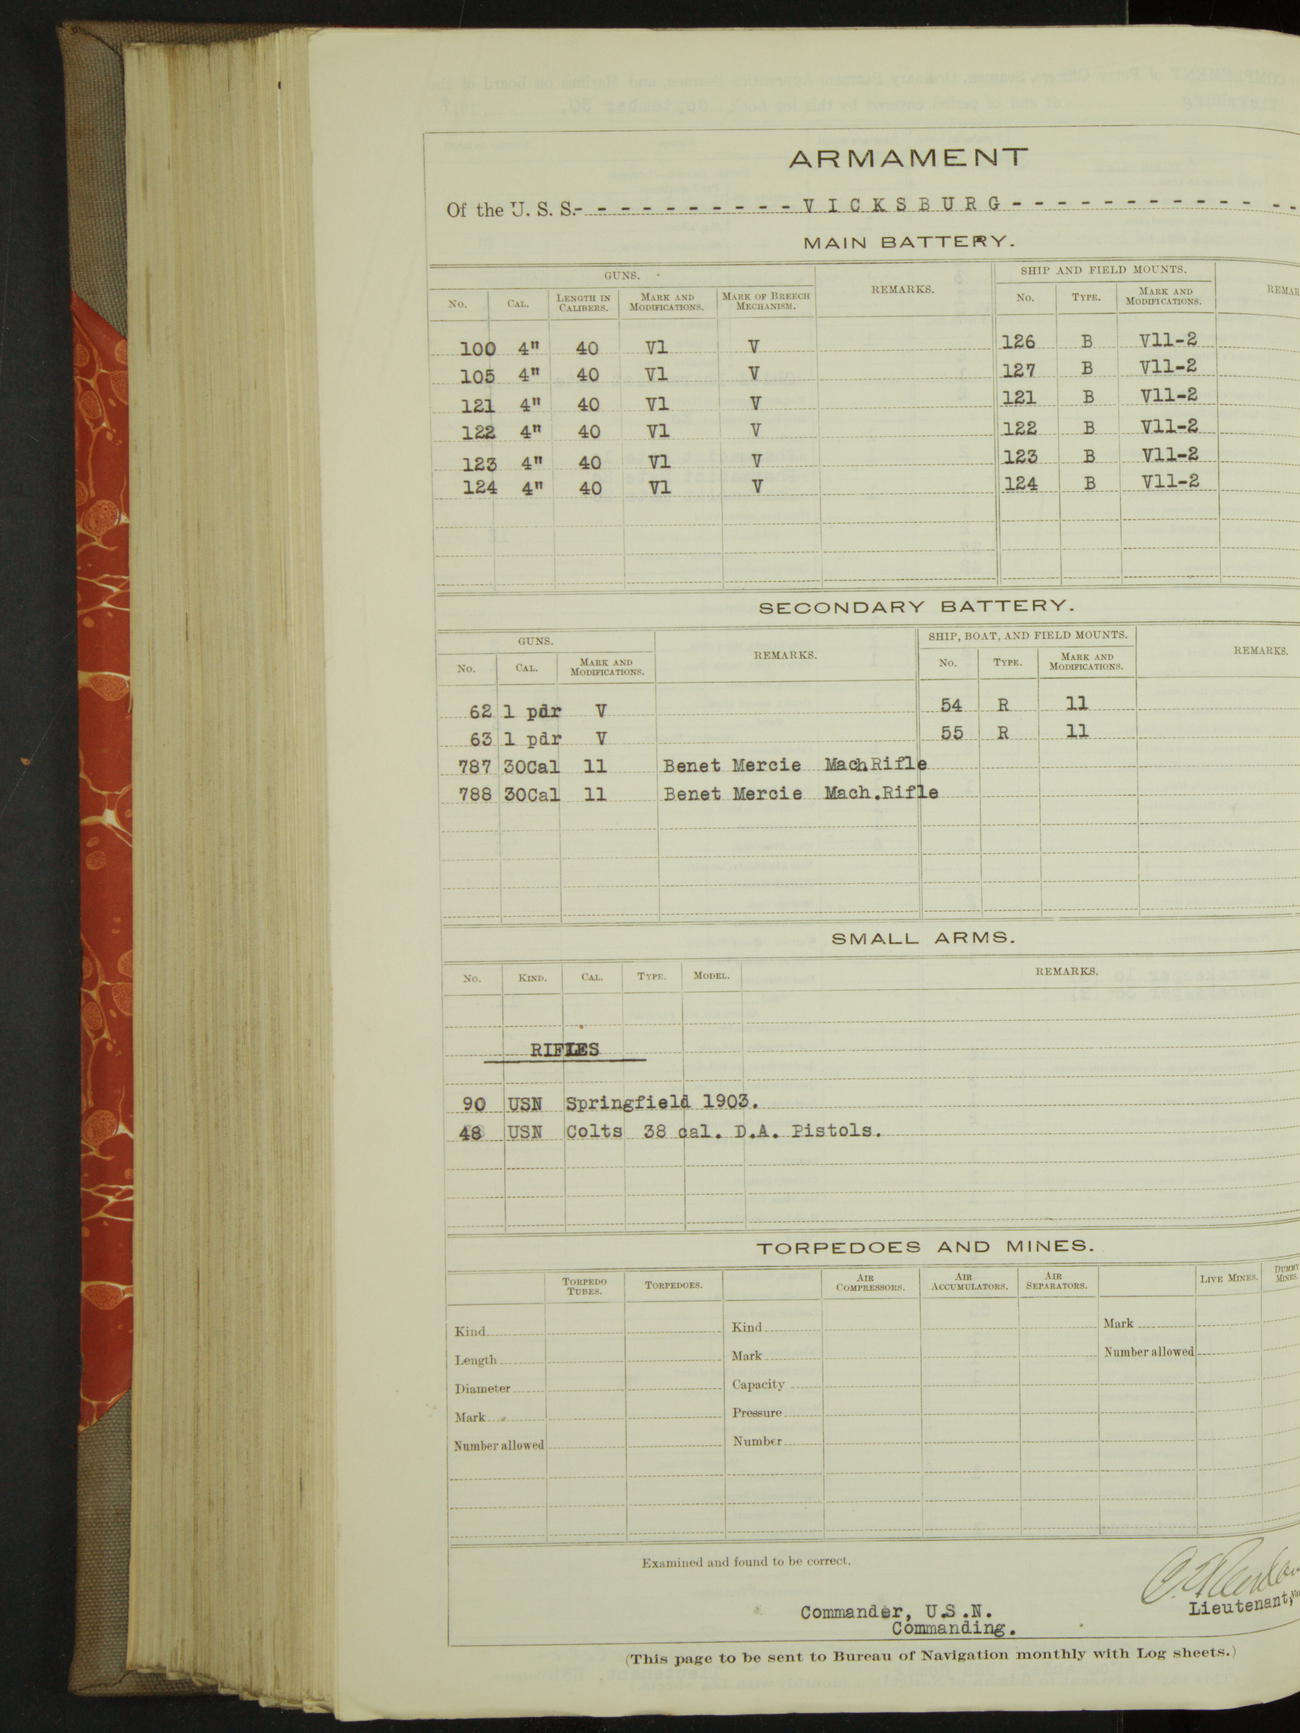 ARMAMENT
Of the U. S. S.- - - - - - - - - - VICKSBURG - - - - - - - - - - - - -
MAIN BATTERY.
GUNS. REMARKS. SHIP AND FIELD MOUNTS.
No. CAL. LENGTH IN CALIBERS. MARK AND MODIFICATIONS. MARK OF BREECH MECHANISM. No. TYPE. MARK AND MODIFICATIONS.
100 4" 40 V1 V 126 B V11-2
105 4" 40 V1 V 127 B V11-2
121 4" 40 V1 V 121 B V11-2
122 4" 40 V1 V 122 B V11-2
123 4" 40 V1 V 123 B V11-2
124 4" 40 V1 V 124 B V11-2
SECONDARY BATTERY.
GUNS. REMARKS. SHIP, BOAT, AND FIELD MOUNTS. REMARKS.
No. CAL. MARK AND MODIFICATIONS. No. TYPE. MARK AND MODIFICATIONS.
62 1 pdr V 54 R 11
63 1 pdr V 55 R 11
787 30Cal 11 Benet Mercie Mach Rifle
788 30Cal 11 Benet Mercie Mach.Rifle
SMALL ARMS.
No. KIND. CAL. TYPE. MODEL. REMARKS.
RIFLES
90 USN Springfield 1903.
48 USN Colts 38 cal. D.A. Pistols.
TORPEDOES AND MINES.
TORPEDO TUBES. TORPEDOES. AIR COMPRESSORS. AIR ACCUMULATORS. AIR SEPARATORS. LIVE MINES. DUMMY MINES.
Kind Kind Mark
Length Mark Number allowed
Diameter Capacity
Mark Pressure
Number allowed Number
Examined and found to be correct.
Commander, U.S.N.
Commanding.
Lieutenant,
(This page to be sent to Bureau of Navigation monthly with Log sheets.)